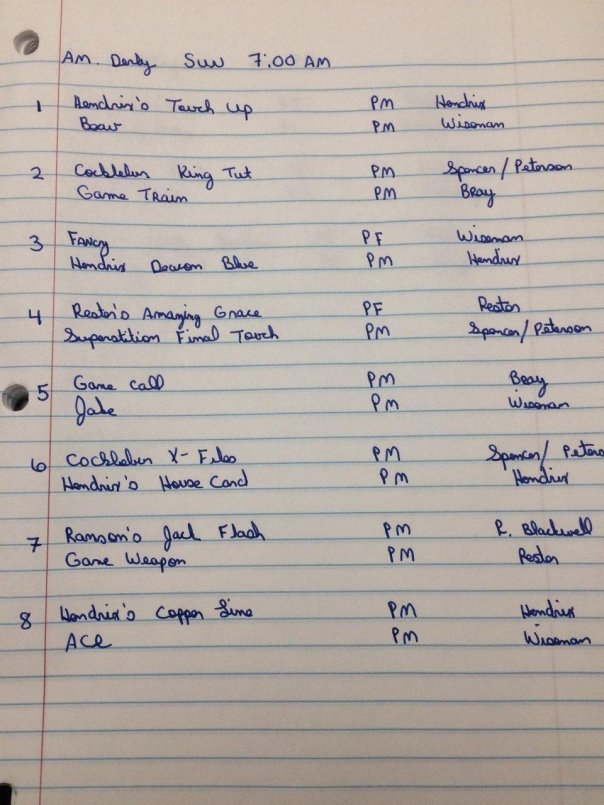 AM. Derby Sun 7:00 AM
1 Hendrix's Touch Up PM Hendrix
Beau PM Wiseman
2 Cocklebur King Tut PM Spencer/Peterson
Game Train PM Bray
3 Fancy PF Wiseman
Hendrix Deacon Blue PM Hendrix
4 Rester's Amazing Grace PF Rester
Superstition Final Touch PM Spencer/Peterson
5 Game Call PM Bray
Jake PM Wiseman
6 Cocklebur X-Files PM Spencer/Peters
Hendrix's House Card PM Hendrix
7 Ransom's Jack Flash PM R. Blackwell
Game Weapon PM Rester
8 Hendrix's Copper Line PM Hendrix
ACE PM Wiseman